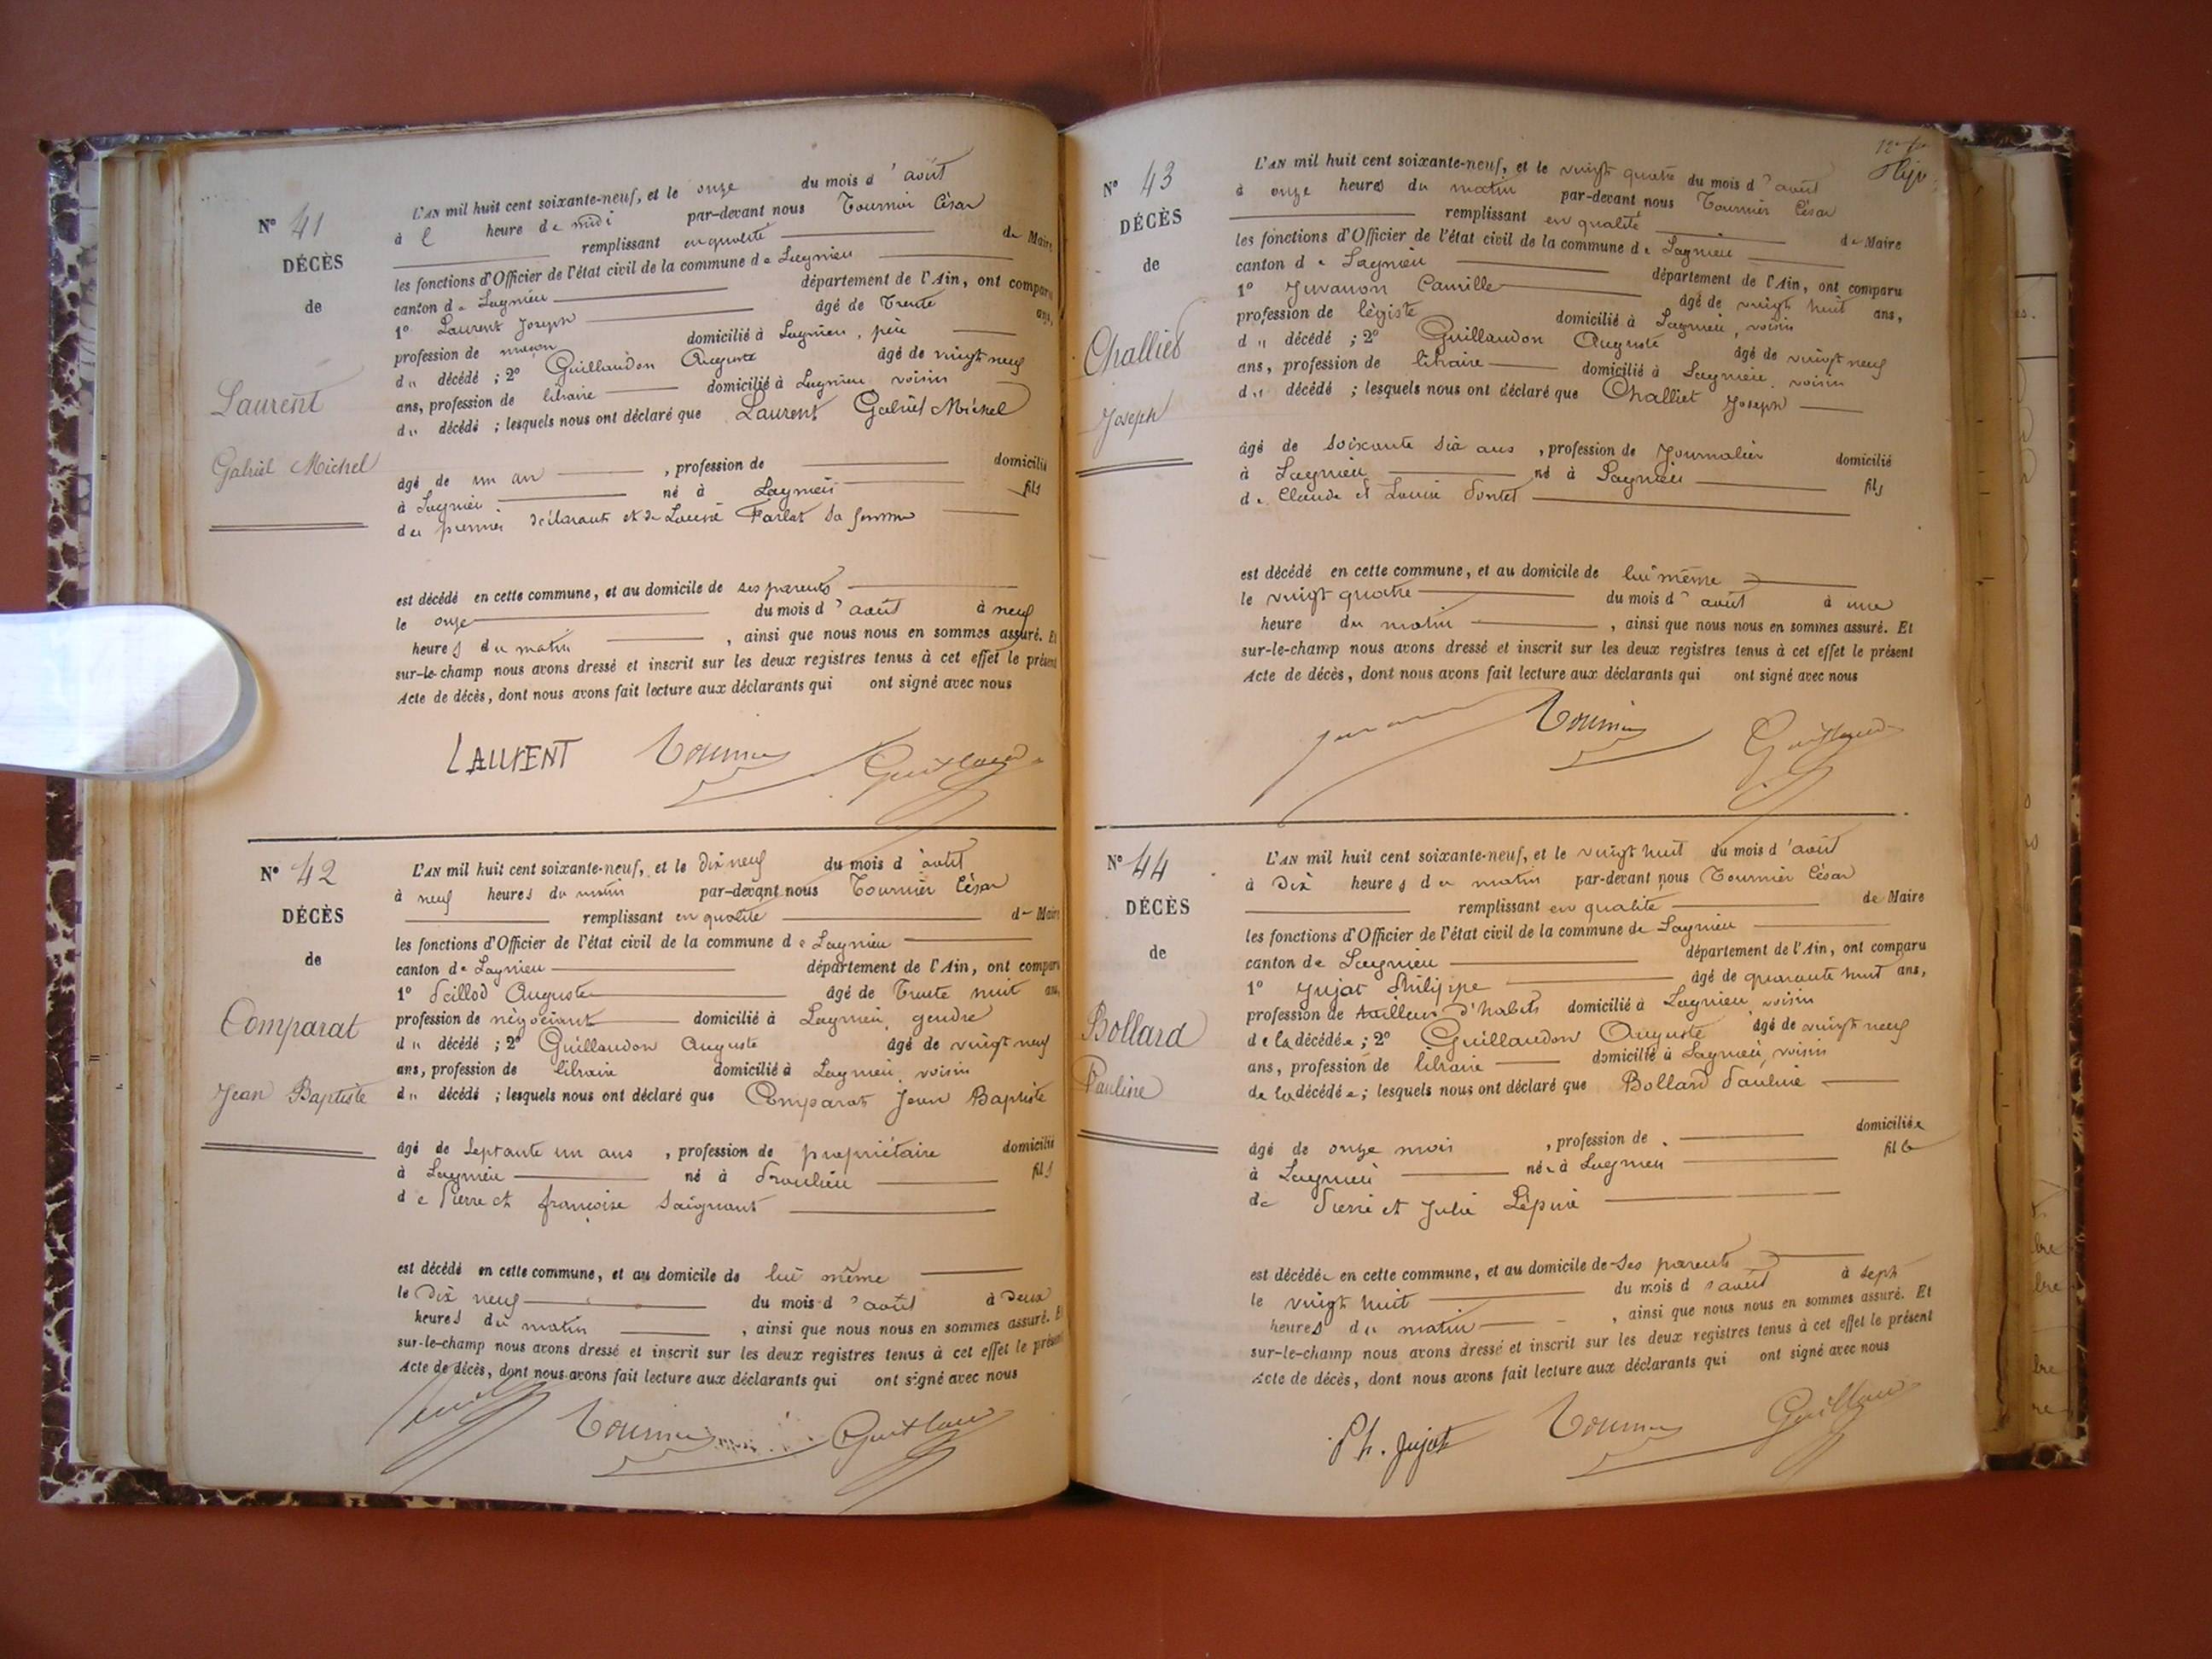 N° 41
DÉCÈS
de
Laurent
Gabriel Michel
L'AN mil huit cent soixante-neuf, et le onze du mois d'août
à l heure de midi par-devant nous Tournier César
remplissant en qualité de Maire
les fonctions d'Officier de l'état civil de la commune de Lagnieu
canton de Lagnieu département de l'Ain, ont comparu
1° Laurent Joseph âgé de Trente ans,
profession de maçon domicilié à Lagnieu, père
du décédé ; 2° Guillaudon Auguste âgé de vingt neuf
ans, profession de libraire domicilié à Lagnieu, voisin
du décédé ; lesquels nous ont déclaré que Laurent Gabriel Michel
âgé de un an , profession de domicilié
à Lagnieu né à Lagnieu fils
du premier déclarant et de Louise Farlat sa femme
est décédé en cette commune, et au domicile de ses parents
le onze du mois d'août à neuf
heures du matin , ainsi que nous nous en sommes assuré. Et
sur-le-champ nous avons dressé et inscrit sur les deux registres tenus à cet effet le présent
Acte de décès, dont nous avons fait lecture aux déclarants qui ont signé avec nous
LAURENT Tournier Guillaudon
N° 42
DÉCÈS
de
Comparat
Jean Baptiste
L'AN mil huit cent soixante-neuf, et le dix neuf du mois d'août
à neuf heures du matin par-devant nous Tournier César
remplissant en qualité de Maire
les fonctions d'Officier de l'état civil de la commune de Lagnieu
canton de Lagnieu département de l'Ain, ont comparu
1° Auguste âgé de Trente huit ans,
profession de négociant domicilié à Lagnieu, gendre
du décédé ; 2° Guillaudon Auguste âgé de vingt neuf
ans, profession de libraire domicilié à Lagnieu, voisin
du décédé ; lesquels nous ont déclaré que Comparat Jean Baptiste
âgé de Septante un ans , profession de propriétaire domicilié
à Lagnieu né à Proulieu fils
de Pierre et françoise Saignant
est décédé en cette commune, et au domicile de lui même
le Dix neuf du mois d'août à Deux
heures du matin , ainsi que nous nous en sommes assuré. Et
sur-le-champ nous avons dressé et inscrit sur les deux registres tenus à cet effet le présent
Acte de décès, dont nous avons fait lecture aux déclarants qui ont signé avec nous
Tournier Guillaudon
N° 43
DÉCÈS
de
Challiet
Joseph
L'AN mil huit cent soixante-neuf, et le vingt quatre du mois d'août
à onze heures du matin par-devant nous Tournier César
remplissant en qualité de Maire
les fonctions d'Officier de l'état civil de la commune de Lagnieu
canton de Lagnieu département de l'Ain, ont comparu
1° Juvanon Camille âgé de vingt huit ans,
profession de légiste domicilié à Lagnieu, voisin
du décédé ; 2° Guillaudon Auguste âgé de vingt neuf
ans, profession de libraire domicilié à Lagnieu, voisin
du décédé ; lesquels nous ont déclaré que Challiet Joseph
âgé de soixante six ans , profession de Journalier domicilié
à Lagnieu né à Lagnieu fils
de Claude et Louise
est décédé en cette commune, et au domicile de lui même
le vingt quatre du mois d'août à une
heure du matin , ainsi que nous nous en sommes assuré. Et
sur-le-champ nous avons dressé et inscrit sur les deux registres tenus à cet effet le présent
Acte de décès, dont nous avons fait lecture aux déclarants qui ont signé avec nous
Juvanon Tournier Guillaudon
N° 44
DÉCÈS
de
Bollard
Pauline
L'AN mil huit cent soixante-neuf, et le vingt huit du mois d'août
à Dix heures du matin par-devant nous Tournier César
remplissant en qualité de Maire
les fonctions d'Officier de l'état civil de la commune de Lagnieu
canton de Lagnieu département de l'Ain, ont comparu
1° Jujat Philippe âgé de quarante huit ans,
profession de tailleur d'habits domicilié à Lagnieu, voisin
de la décédée ; 2° Guillaudon Auguste âgé de vingt neuf
ans, profession de libraire domicilié à Lagnieu, voisin
de la décédée ; lesquels nous ont déclaré que Bollard Pauline
âgé de onze mois , profession de domiciliée
à Lagnieu née à Lagnieu fille
de Pierre et Julie Lépine
est décédée en cette commune, et au domicile de ses parents
le vingt huit du mois d'août à sept
heures du matin , ainsi que nous nous en sommes assuré. Et
sur-le-champ nous avons dressé et inscrit sur les deux registres tenus à cet effet le présent
Acte de décès, dont nous avons fait lecture aux déclarants qui ont signé avec nous
Ph. Jujat Tournier Guillaudon